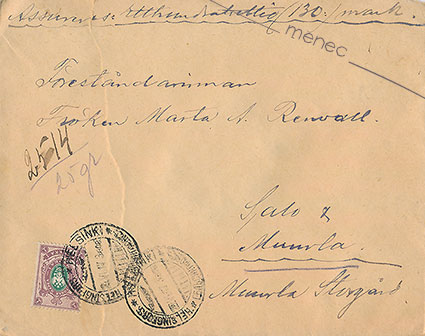 Assureras: Etthundratrettio /130:/ mark.
menec
Föreståndarinnan
Fröken Marta A. Renvall.
2514
25 gr
Salo &
Muurla.
Muurla Storgård
HELSINGFORS
HELSINKI